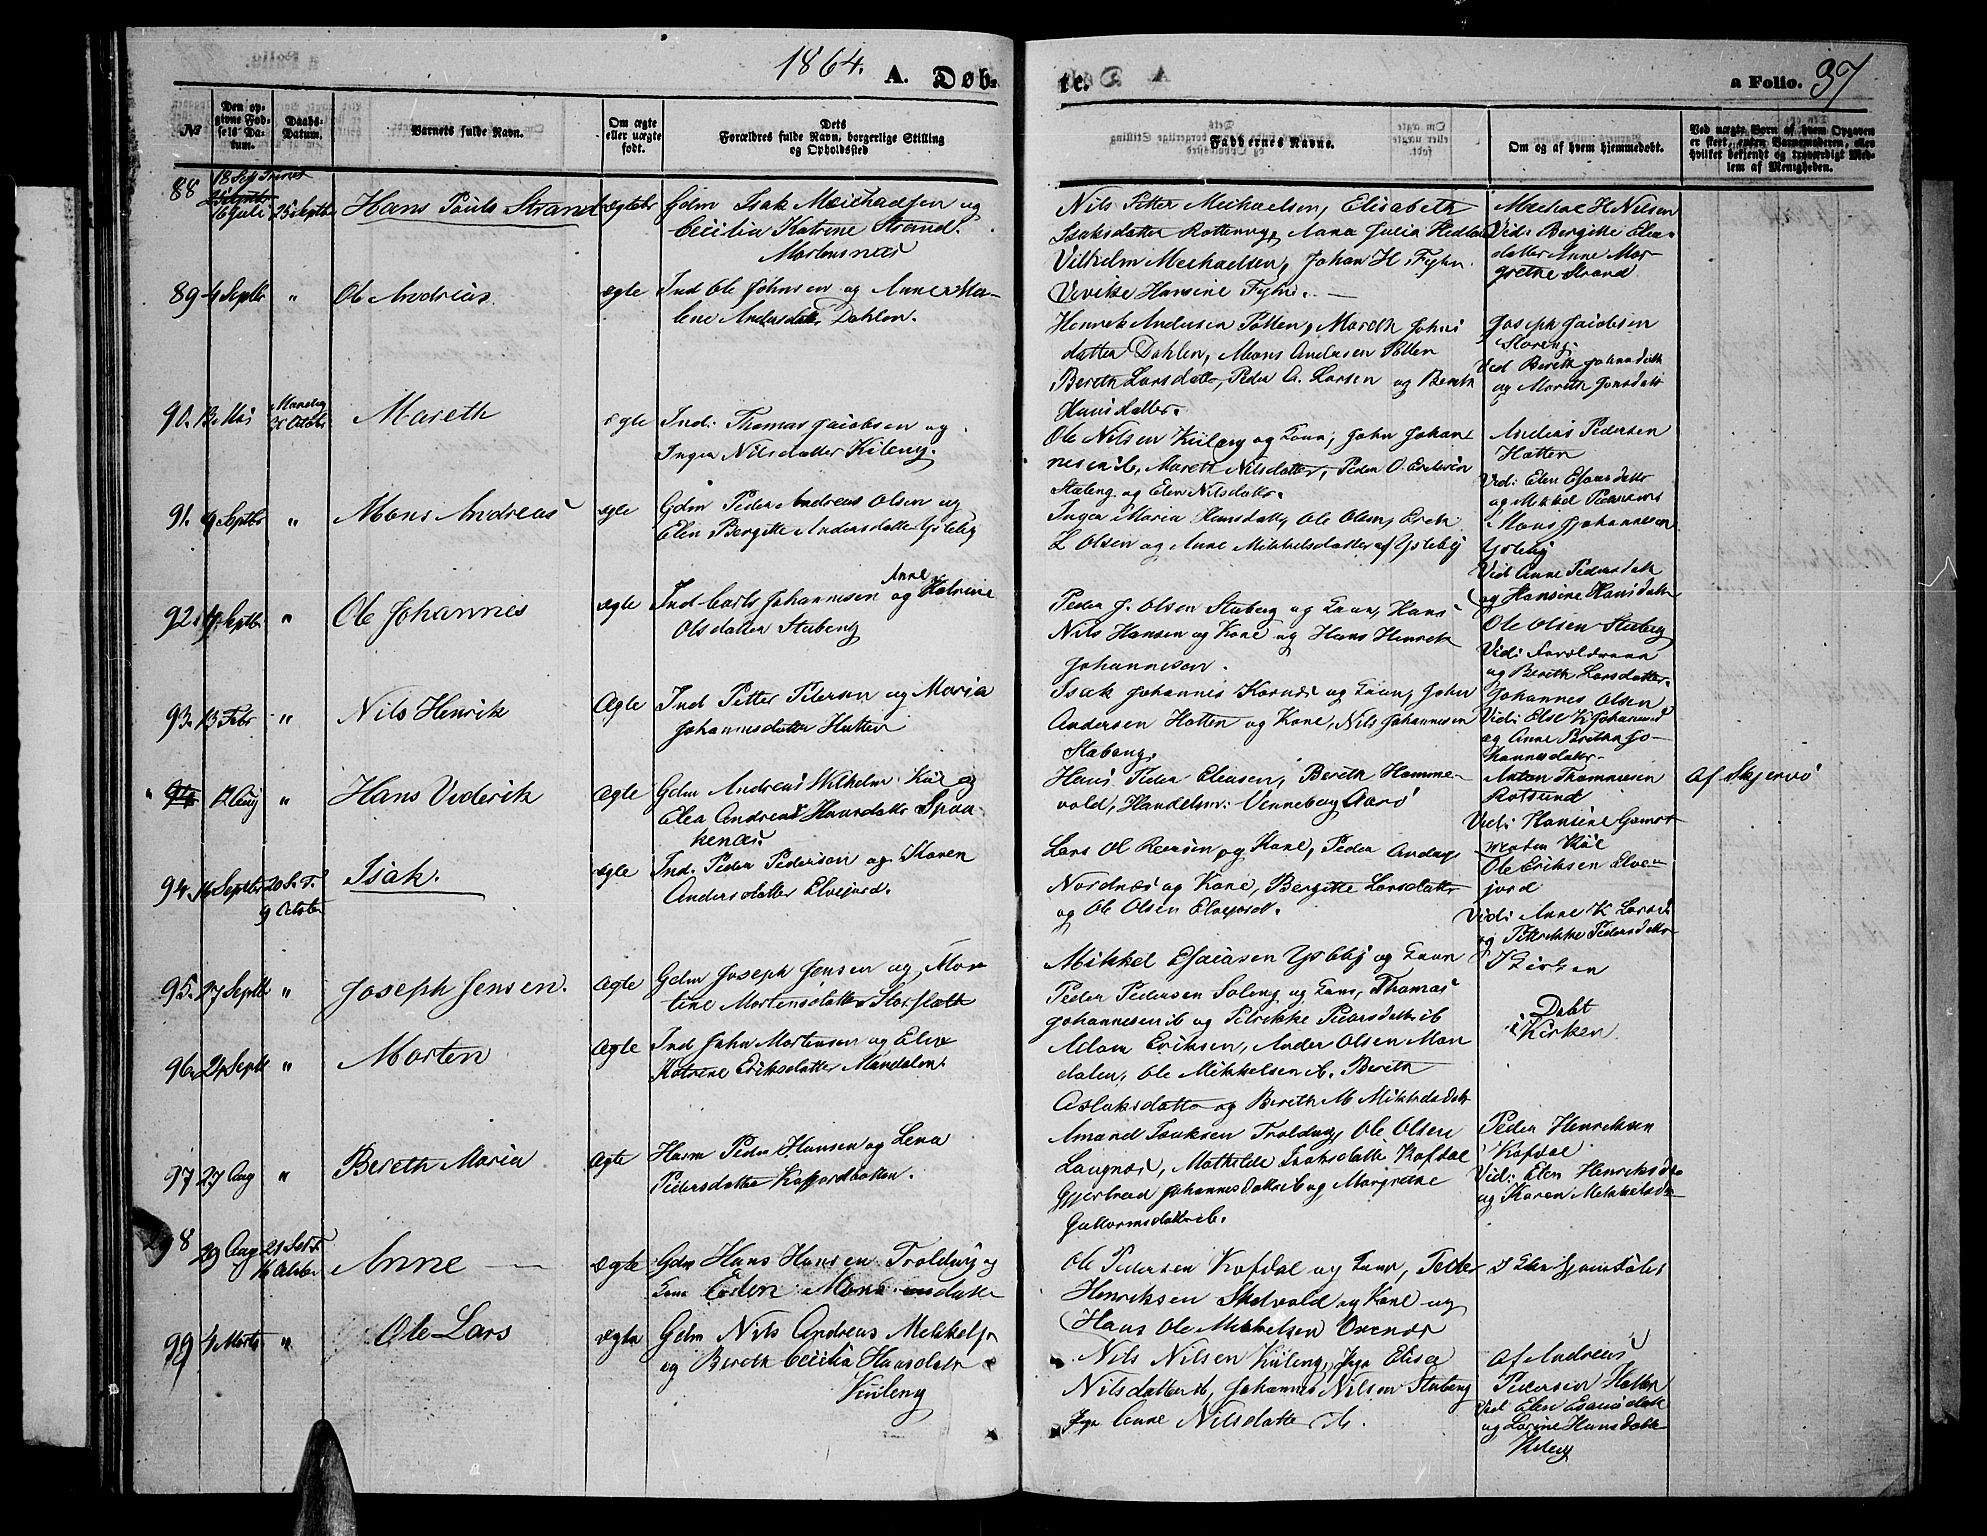 1864. A. Døb-
te. a Folio. 37
№
Den opgivne Fødsels Datum.
Daabs-Datum.
Barnets fulde Navn.
Om ægte eller uægte født.
Dets Forældres fulde Navn, borgerlige Stilling og Opholdssted
Faddernes Navne.
Om og af hvem hjemmedøbt.
Ved uægte Børn af hvem Opgaven er skeet, enten Barnemoderen, eller hvilket bekjendt og troværdigt Medlem af Menigheden.
88
16 Juli 25 Septbr Hans Pauls Strand ægte Gdm Isak Meichaelsen og
Cecilia Katrine Strand.
Mortensnæs
Nils Petter Mechaelsen, Elisabeth
Isaksdatter Rottenvig, Anna Julia
Vilhelm Mechaelsen, Johan H.
Hansine
Mechal H Nilsen
Vid: Bergitte Elea-
datter Anne Mar-
grethe Strand
89 4 Septbr " Ole Andreas ægte Ind Ole Johnsen og Anne Ma-
lene Andersdatter Dahlen.
Henrik Andersen Potten, Mareth Johns
datter Dahlen, Mons Andersen Potten
Bereth Larsdatter, Peder A. Larsen og Bereth
Hansdatter.
Joseph Jacobsen
Storeng.
Vid Bereth Johnsdatt
og Mareth Jonsdatt
90. 13 Mai Mareth ægte Ind: Thomas Jacobsen og
Inger Nilsdatter Kileng.
Ole Nilsen Kileng og Kone, John Johan
nesen ib, Mareth Nilsdatter, Peder O. Eriksen
Stabeng og Elen Nilsdattr.
Andreas Pedersen
Hatten
Vid: Elen Esaiasdattr
og Mikkel Pedersens
91. 9 Septbr " Mons Andreas ægte Gdm Peder Andreas Olsen og
Elen Bergitte Andersdatter Ysteby
Inger Maria Hansdatter, Ole Olsen, Erik
L Olsen og Anne Mikkelsdatter af Ysteby
Mons Johannesen
Ysteby
Vid Anne Pedersdatt
og Hansine Hansdattr
92. Septbr " Ole Johannes ægte Ind Carl Johannesen og Anne Katrine
Olsdatter Stabeng
Peder J. Olsen Stabeng og Kone, Hans
Nils Hansen og Kone og Hans Henrik
Johannesen.
Ole Olsen Stabeng
Vid: Forældrene
og Bereth Larsdatter.
93. 13 Febr " Nils Henrik Ægte Ind Petter Petersen og Maria
Johannesdatter Hatten
Isak Johannes Kornæs og Kone, John
Andersen Hatten og Kone, Nils Johannesen
Stabeng.
Johannes Olsen
Vid: Else K Johannesd
og Anne Berethe Jo-
hannesdattr
Aug " Hans Vederik Ægte Gdm Andreas Wilhelm Kiil og
Elea Andrea Hansdatter Spaa
kenæs.
Hans Peder Eleasen, Bereth Hamme-
vold, Handelsm: Venneberg Aarø
Anton Thommesen
Rotsund
Vid: Hansine
Af Skjervø
94. 16 Septbr 20 S. T. 9 Octobr Isak. ægte Ind. Peder Pedersen og Karen
Andersdatter Elvejord.
Lars Ol Larsen og Kone, Peder Andreas
Nordnæs og Kone, Bergitte Larsdatter
og Ole Olsen Elvejord.
Ole Eriksen Elve-
jord
Vid: Anne K Larsd
og Petrikke Pedersdattr
95. 27 Septbr " Joseph Jensen. Ægte Gdm Joseph Jensen og Mar
tine Mortensdatter Storslætt
Mikkel Esaiasen Ysteby og Kone
Peder Pedersen Soleng og Kone, Thomas
Johannesen ib og Petrikke Pedersdattr ib
I Kirken
96. 24 Septb " Morten Ægte Ind John Mortensen og Elen
Katrine Eriksdatter Mandalen.
Adam Eriksen, Ander Olsen Man
dalen, Ole Mikkelsen ib. Bereth
Aslaksdatter og Bereth M Mikkelsdattr
Døbt
i Kirken
97 27 Aug " Bereth Maria Ægte Huusm Peder Hansen og Lena
Pedersdatter Kaffjordbotten.
Amand Isaksen Troldvig, Ole Olsen
Langnæs, Mathilde Isaksdatter Kafdal
Gjertrud Johannesdatter ib og Margrethe
Guttormsdatter ib.
Peder Henriksen
Kafdal
Vid: Elen Henriksdtr
og Karen Mikkelsdtr
98 29 Aug 21 S. e. T. 16 Octobr Anne ægte Gdm Hans Hansen Troldvig og
Kone Esten Monsdatter
Ole Pedersen Kafdal og Kone, Peder
Henriksen Skatvold og Kone og
Hans Ole Mikkelsen Oxenæs
I Kirken
99 4 Marts " Ole Lars ægte Gdm Nils Andreas Mekkels
og Bereth Cecilia Hansdattr
Kileng
Nils Nilsen Kileng, Jgr Elisa
Nilsdatter ib, Johannes Nilsen Stabeng
Jgr Anne Nilsdatter ib.
Af Andreas
Pedersen Hatten
Vid Elen Esaiasdatt
og Lorine Hansdatter
Kileng